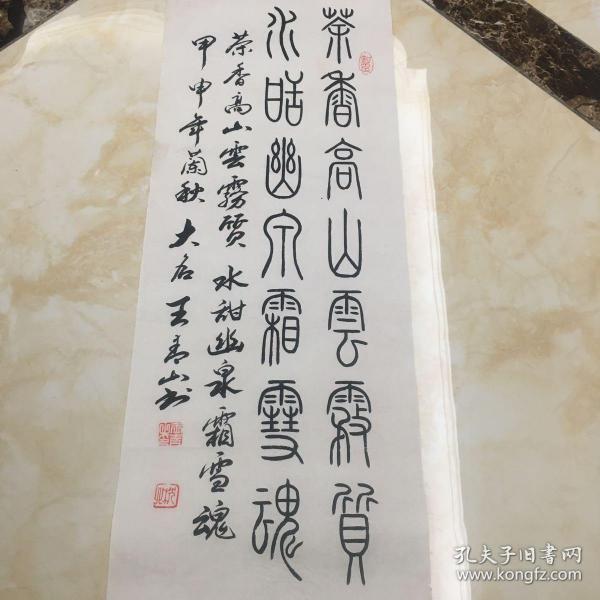 茶香高山雲霧質
水甜幽泉霜雪魂
茶香高山雲霧質 水甜幽泉霜雪魂
甲申年蘭秋 大名 王青山書
孔夫子旧书网
www.kongfz.com